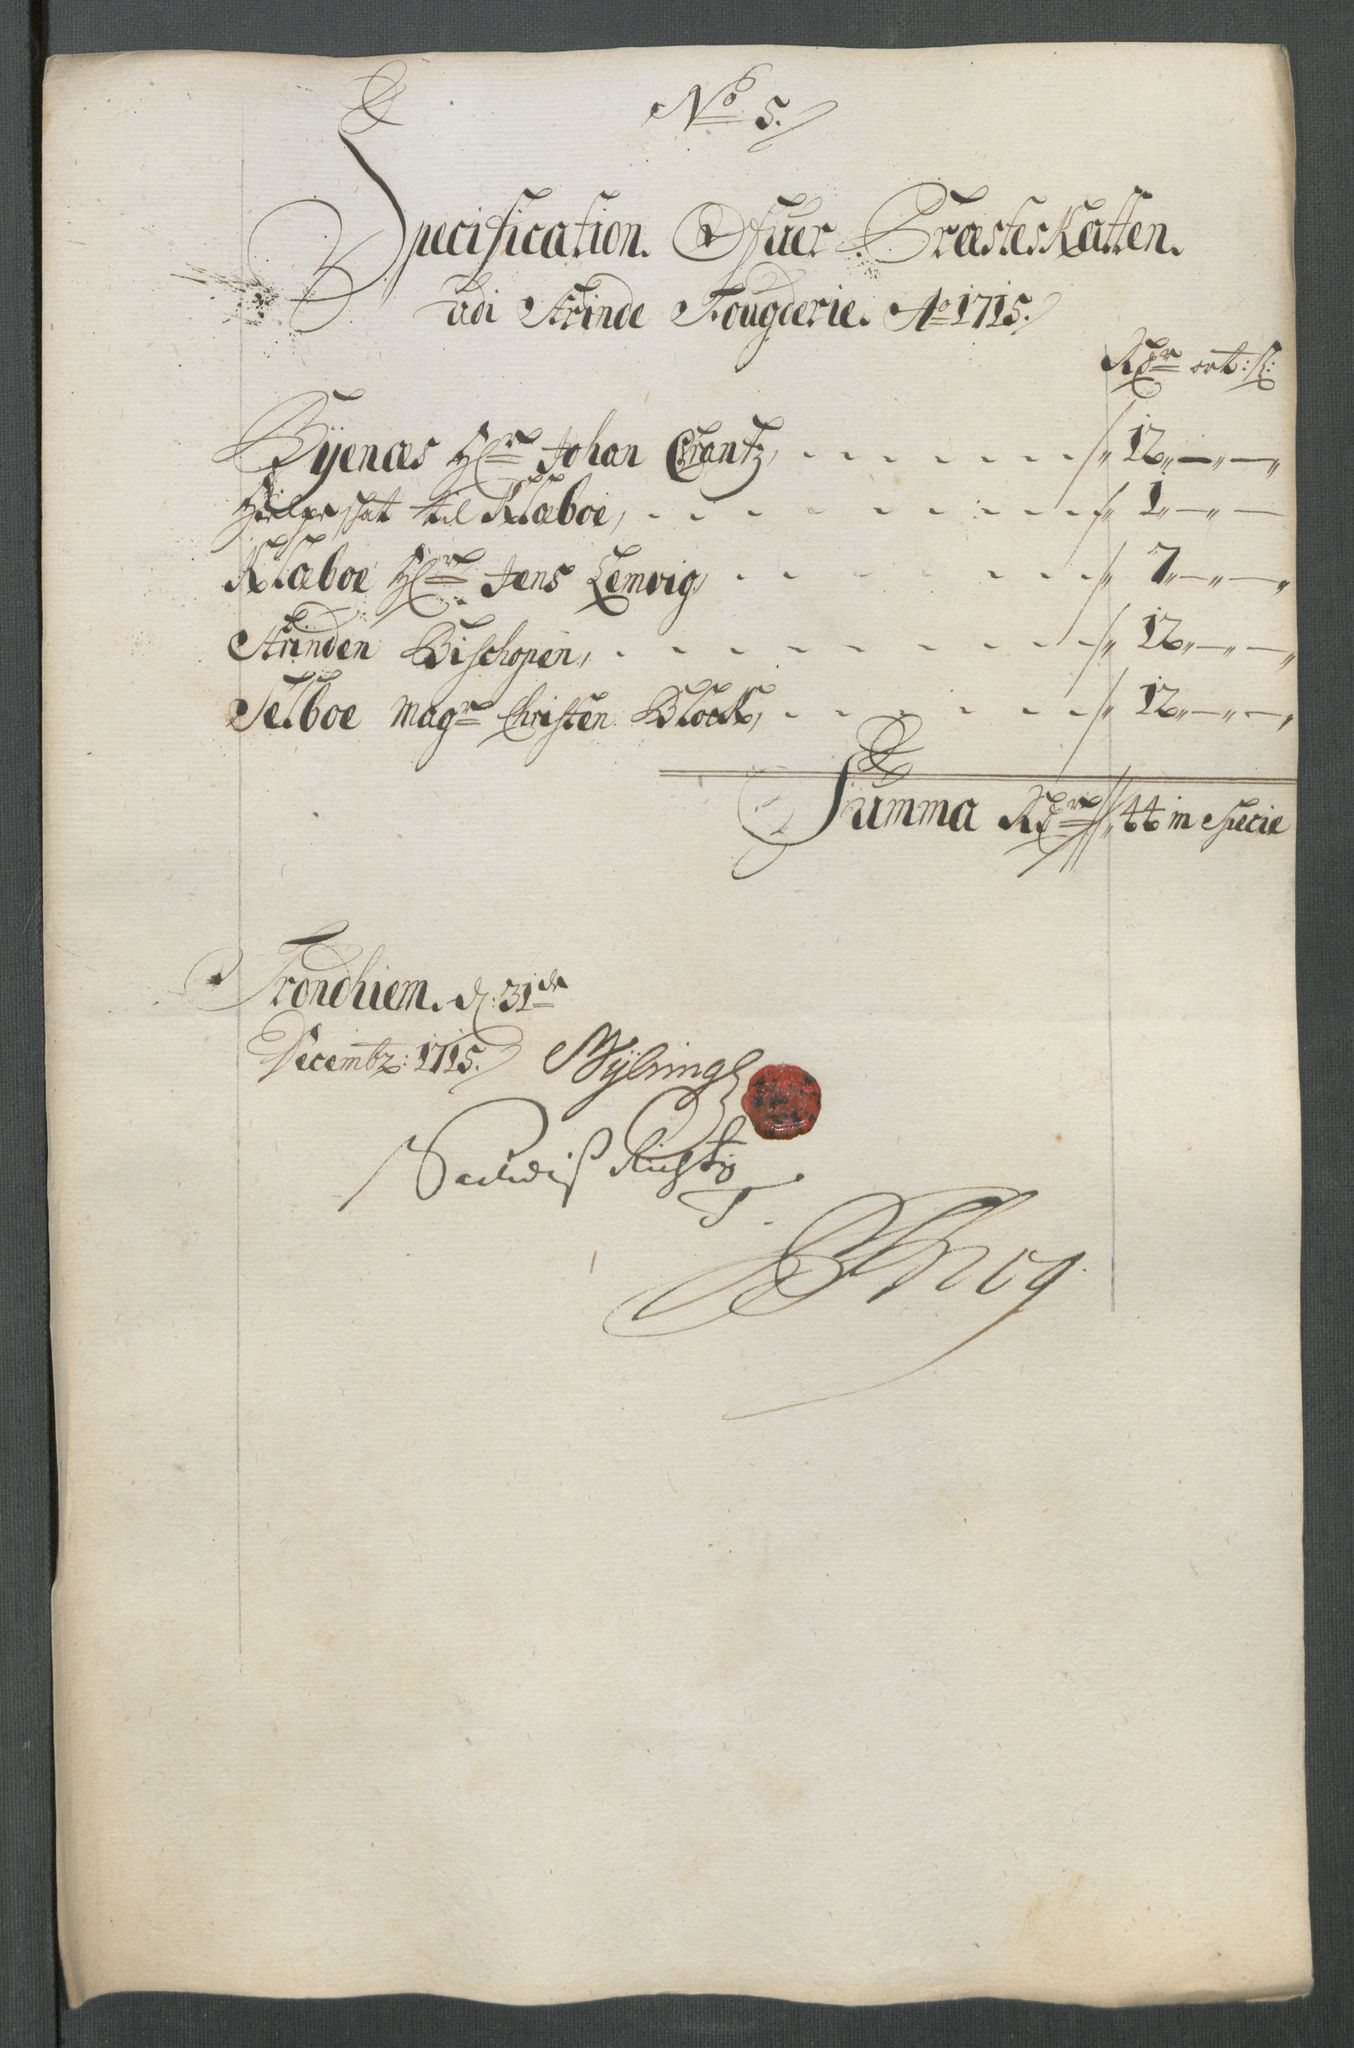 No 5.
Specification Ofuer Præsteskatten
udi Strinde Fougderie Ao 1715.
Rdr ort: s:
Byenæs Hr Johan Crantz, 12
Hielpe skat til Klæboe, 1
Klæboe Hr Jens Lemvig, 7
Strinden Bischopen, 12
Selboe Magr Christen Block, 12
Summa Rdr 44 in Specie
Trondhiem. d: 31de
Decembr: 1715.
Richtig